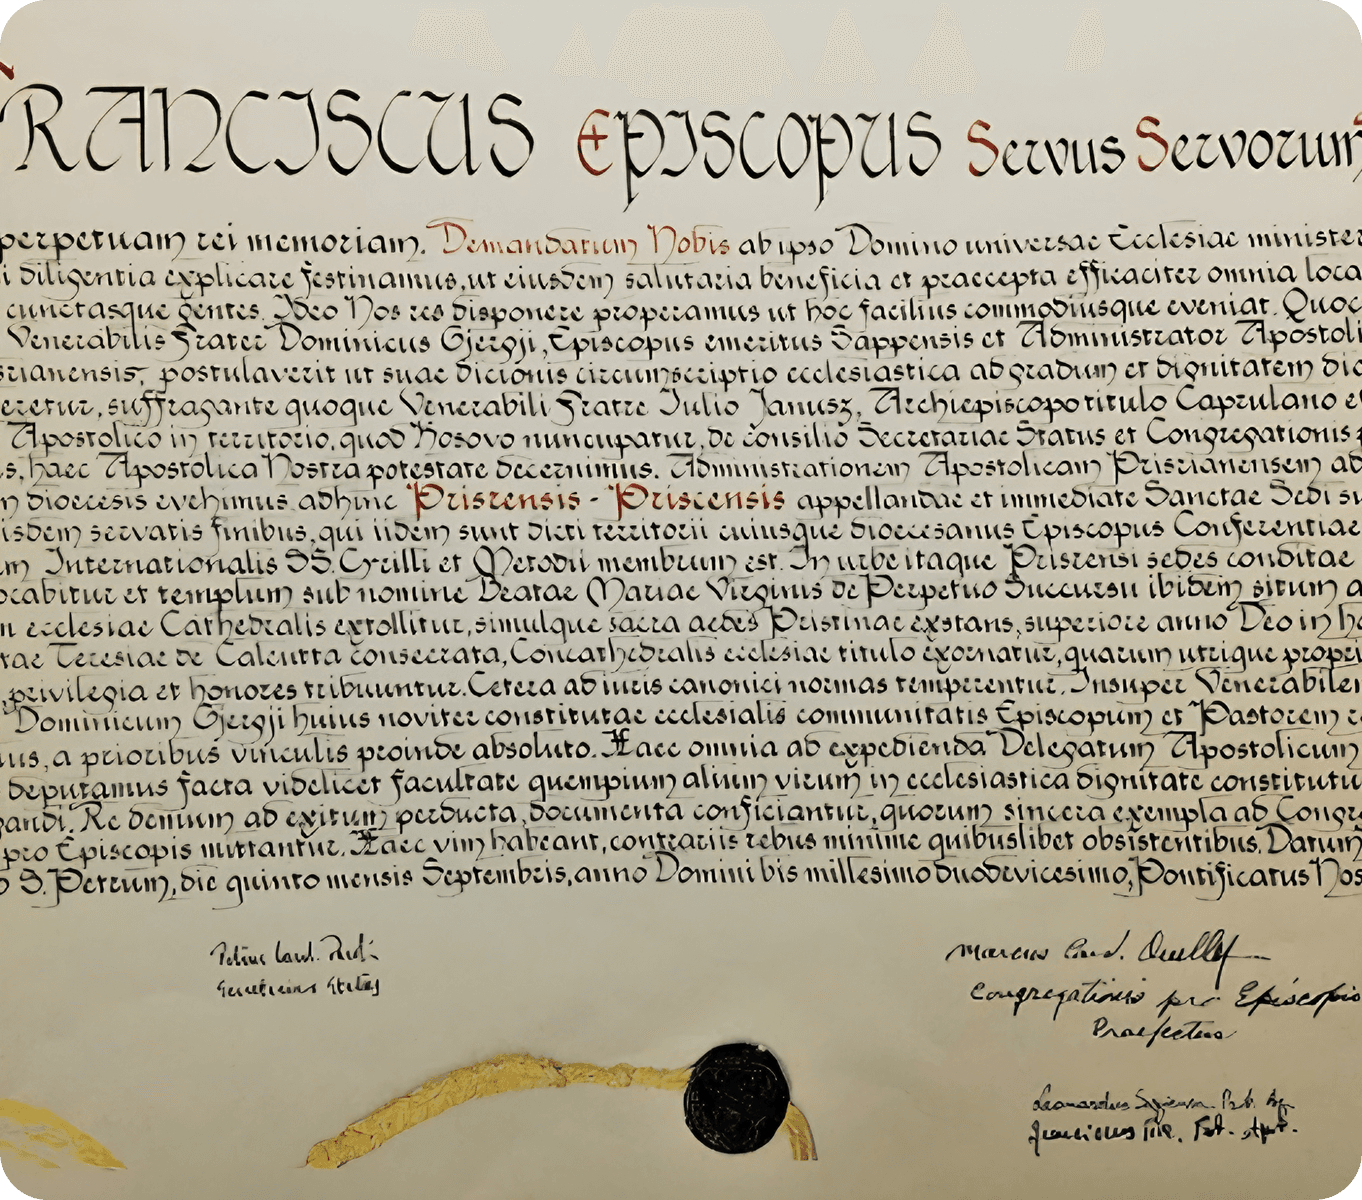 FRANCISCUS EPISCOPUS Servus Servorum
perpetuam rei memoriam. Demandatum Nobis ab ipso Domino universae Ecclesiae minister
i diligentia explicare festinamus, ut eiusdem salutaria beneficia et praecepta efficaciter omnia loca
cunctasque gentes. Ideo Nos res disponere properamus ut hoc facilius commodiusque eveniat. Quoc
Venerabilis Frater Dominicus Gjergji, Episcopus emeritus Sappensis et Administrator Apostoli
srianensis, postulaverit ut suae dicionis circumscriptio ecclesiastica ad gradum et dignitatem dio
eretur, suffragante quoque Venerabili Fratre Iulio Janusz, Archiepiscopo titulo Caprulano et
Apostolico in territorio, quod Kosovo nuncupatur, de consilio Secretariae Status et Congregationis p
s, haec Apostolica Nostra potestate decernimus. Administrationem Apostolicam Prisrianensem ad
n dioecesis evehimus adhinc Prisrensis - Priscensis appellandae et immediate Sanctae Sedi su
isdem servatis finibus, qui iidem sunt dicti territorii cuiusque dioecesanus Episcopus Conferentiae
m Internationalis SS. Cyrilli et Metodii membrum est. In urbe itaque Prisrensi sedes conditae
ocabitur et templum sub nomine Beatae Mariae Virginis de Perpetuo Succursu ibidem situm a
n ecclesiae Cathedralis extollitur, simulque sacra aedes Pristinae exstans, superiore anno Deo in ho
tae Teresiae de Calcutta consecrata, Concathedralis ecclesiae titulo exornatur, quarum utrique propri
, privilegia et honores tribuuntur. Cetera ad iuris canonici normas temperentur. Insuper Venerabilem
Dominicum Gjergji huius noviter constitutae ecclesialis communitatis Episcopum et Pastorem r
us, a prioribus vinculis proinde absoluto. Haec omnia ad expedienda Delegatum Apostolicum
deputamus facta videlicet facultate quempium alium virum in ecclesiastica dignitate constitutu
gandi. Re demum ad exitum perducta, documenta conficiantur, quorum sincera exempla ad Congr
pro Episcopis mittantur. Haec vim habeant, contrariis rebus minime quibuslibet obsistentibus. Datum
o S. Petrum, die quinto mensis Septembris, anno Domini bis millesimo duodevicesimo, Pontificatus Nos
Petrus Card.
Secretarius Status
Marcus Card. Ouellet
Congregationis pro Episcopis
Praefectus
Leonardus Sapienza